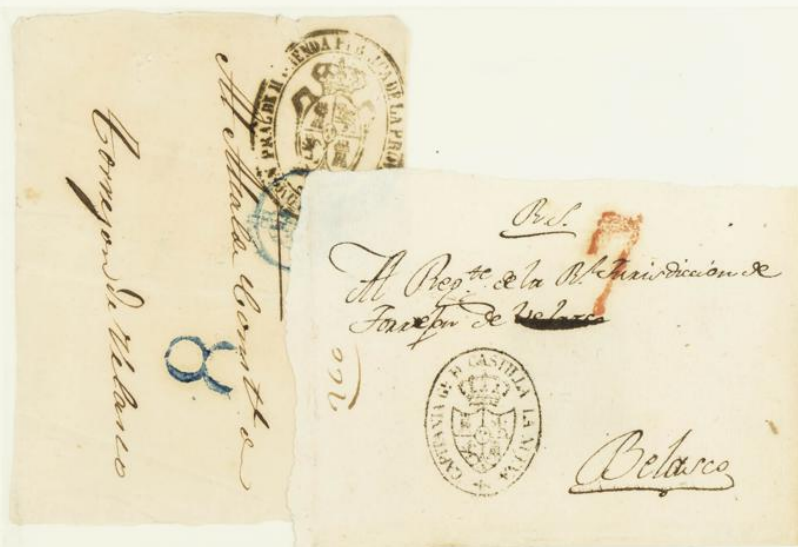 Al Alcalde Constl. de
Torrejon de Velasco
8
HACIENDA PUBLICA DE LA PRO
R.S.
7
Al Regte. de la Rl. Jurisdiccion de
Torrejon de Velasco
CAPITANIA GL. DE CASTILLA LA NUEVA
Belasco